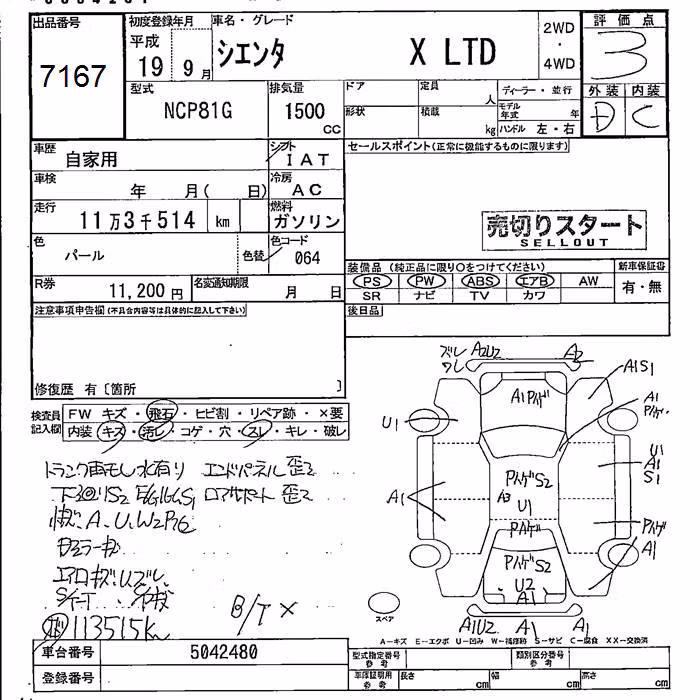 出品番号
7167
初度登録年月
平成
19 9月
車名・グレード
シエンタ X LTD
2WD
・
4WD
評価点
3
外装 内装
D C
型式
NCP81G
排気量
1500
cc
ドア
定員
人
形状
積載
kg
ディーラー・並行
モデル年式 年
ハンドル 左・右
車歴
自家用
シフト
IAT
車検
年 月( 日)
冷房
AC
走行
11万3千514 km
燃料
ガソリン
色
パール
色替
色コード
064
R券
11,200円
名変通知期限
月 日
セールスポイント(正常に機能するものに限ります)
売切りスタート
SELLOUT
装備品 (純正品に限り○をつけてください)
PS PW ABS エアB AW
SR ナビ TV カワ
新車保証書
有・無
後日品
注意事項申告欄(不具合内容等は具体的に記入して下さい)
修復歴 有〔箇所 〕
検査員
記入欄
FW キズ・飛石・ヒビ割・リペア跡・×要
内装 キズ・汚レ・コゲ・穴・スレ・キレ・破レ
トランク雨もし水有り エンドパネル歪ミ
A、U、W2
B/T ×
113515k
ズレ A2U2 A2
ワレ
A1S1
A1
U1
U1
A1
S1
A1
A3
U1
S2
S2
U2
A1
A1
A1U2 A1 A1
スペア
A-キズ E-エクボ U-凹み W-補修跡 S-サビ C-腐食 XX-交換済
車台番号
5042480
登録番号
型式指定番号
参考
類別区分番号
参考
車庫証明用
参考
長さ cm 幅 cm 高さ cm